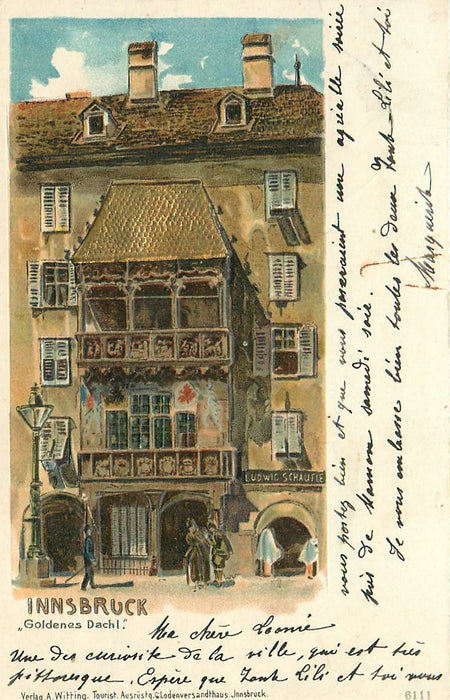 LUDWIG SCHAUFLE
INNSBRUCK
„Goldenes Dachl."
Ma chère Leonie
Une des curiosité de la ville, qui est très
pittoresque. Espère que Tante Lili et toi vous
vous portez bien et que vous passeraient une agréable soirée
près de Maman samedi soir.
Je vous embrasse bien toutes les deux Tante Lili et toi
Marguerite
Verlag A. Witting. Tourist. Ausrüstg. & Lodenversandthaus. Innsbruck.
6111